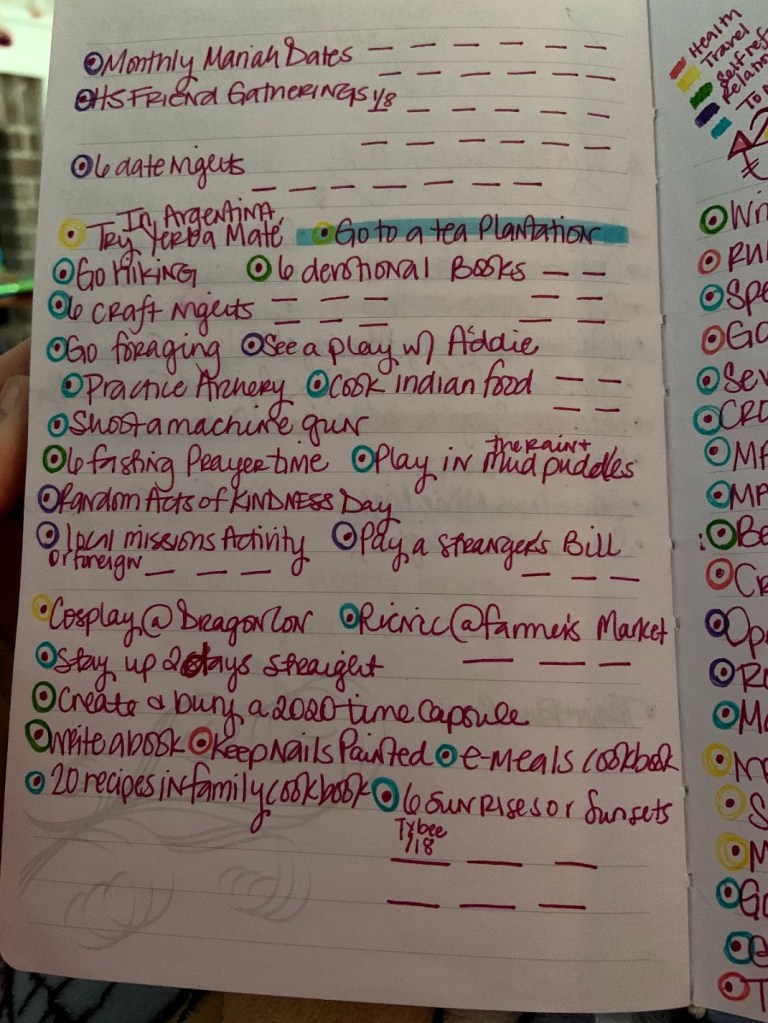 Monthly Mariah Dates
HS Friend Gatherings 1/8
6 date nights
In Argentina,
Try Yerba Maté Go to a tea Plantation
Go Hiking 6 devotional Books
6 craft nights
Go foraging See a play w/ Addie
Practice Archery Cook indian food
Shoot a machine gun
6 fasting Prayer time Play in the Rain + mud puddles
Random Acts of KINDNESS Day
local missions Activity Pay a strangers Bill
or foreign
Cosplay @ DragonCon Picnic @ farmer's Market
Stay up 2 days straight
Create & bury a 2020 time capsule
write a book Keep Nails Painted e-meals cookbook
20 recipes in family cookbook 6 Sunrises or Sunsets
Tybee
1/18
Health
Travel